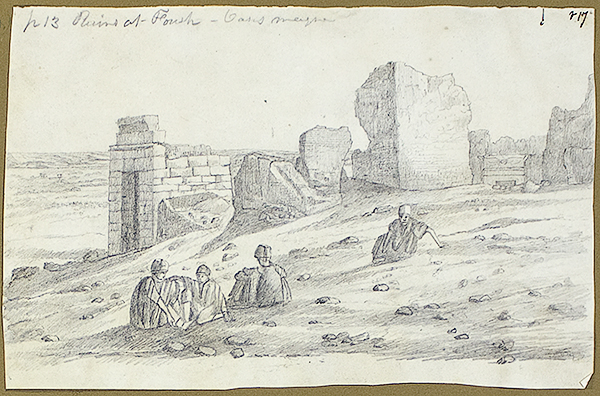 p 13 Ruins at Foush - Oasis magna
217